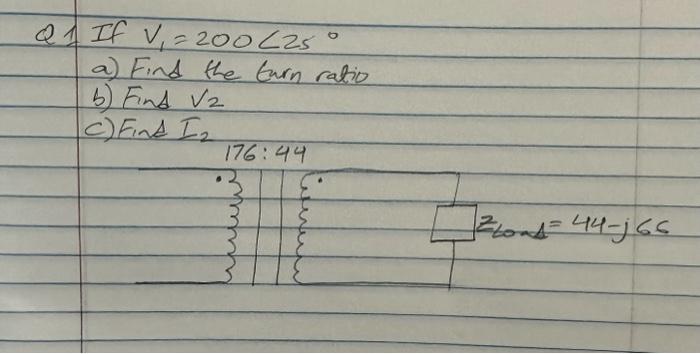 Q1 If V₁ = 200∠25°
a) Find the turn ratio
b) Find V2
c) Find I₂
176:44
Zload = 44-j66